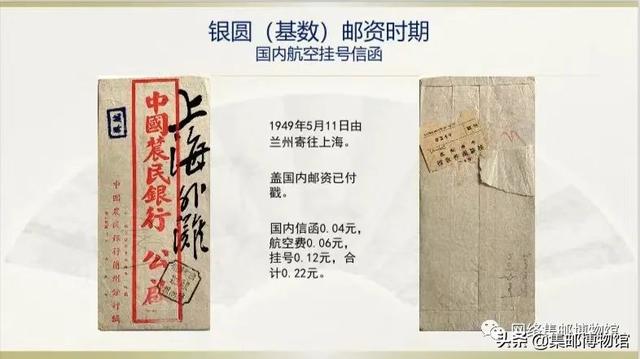 银圆（基数）邮资时期
国内航空挂号信函
中國農民銀行 公啟
上海外灘
中國農民銀行蘭州分行緘
1949年5月11日由
兰州寄往上海。
盖国内邮资已付
戳。
国内信函0.04元，
航空费0.06元，
挂号0.12元，合
计0.22元。
网络集邮博物馆
头条 @集邮博物馆